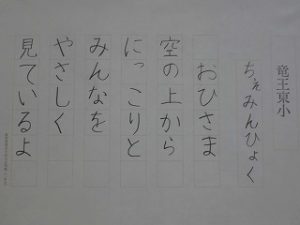 竜王東小
ちぇみんひょく
おひさま
空の上から
にっこりと
みんなを
やさしく
見ているよ